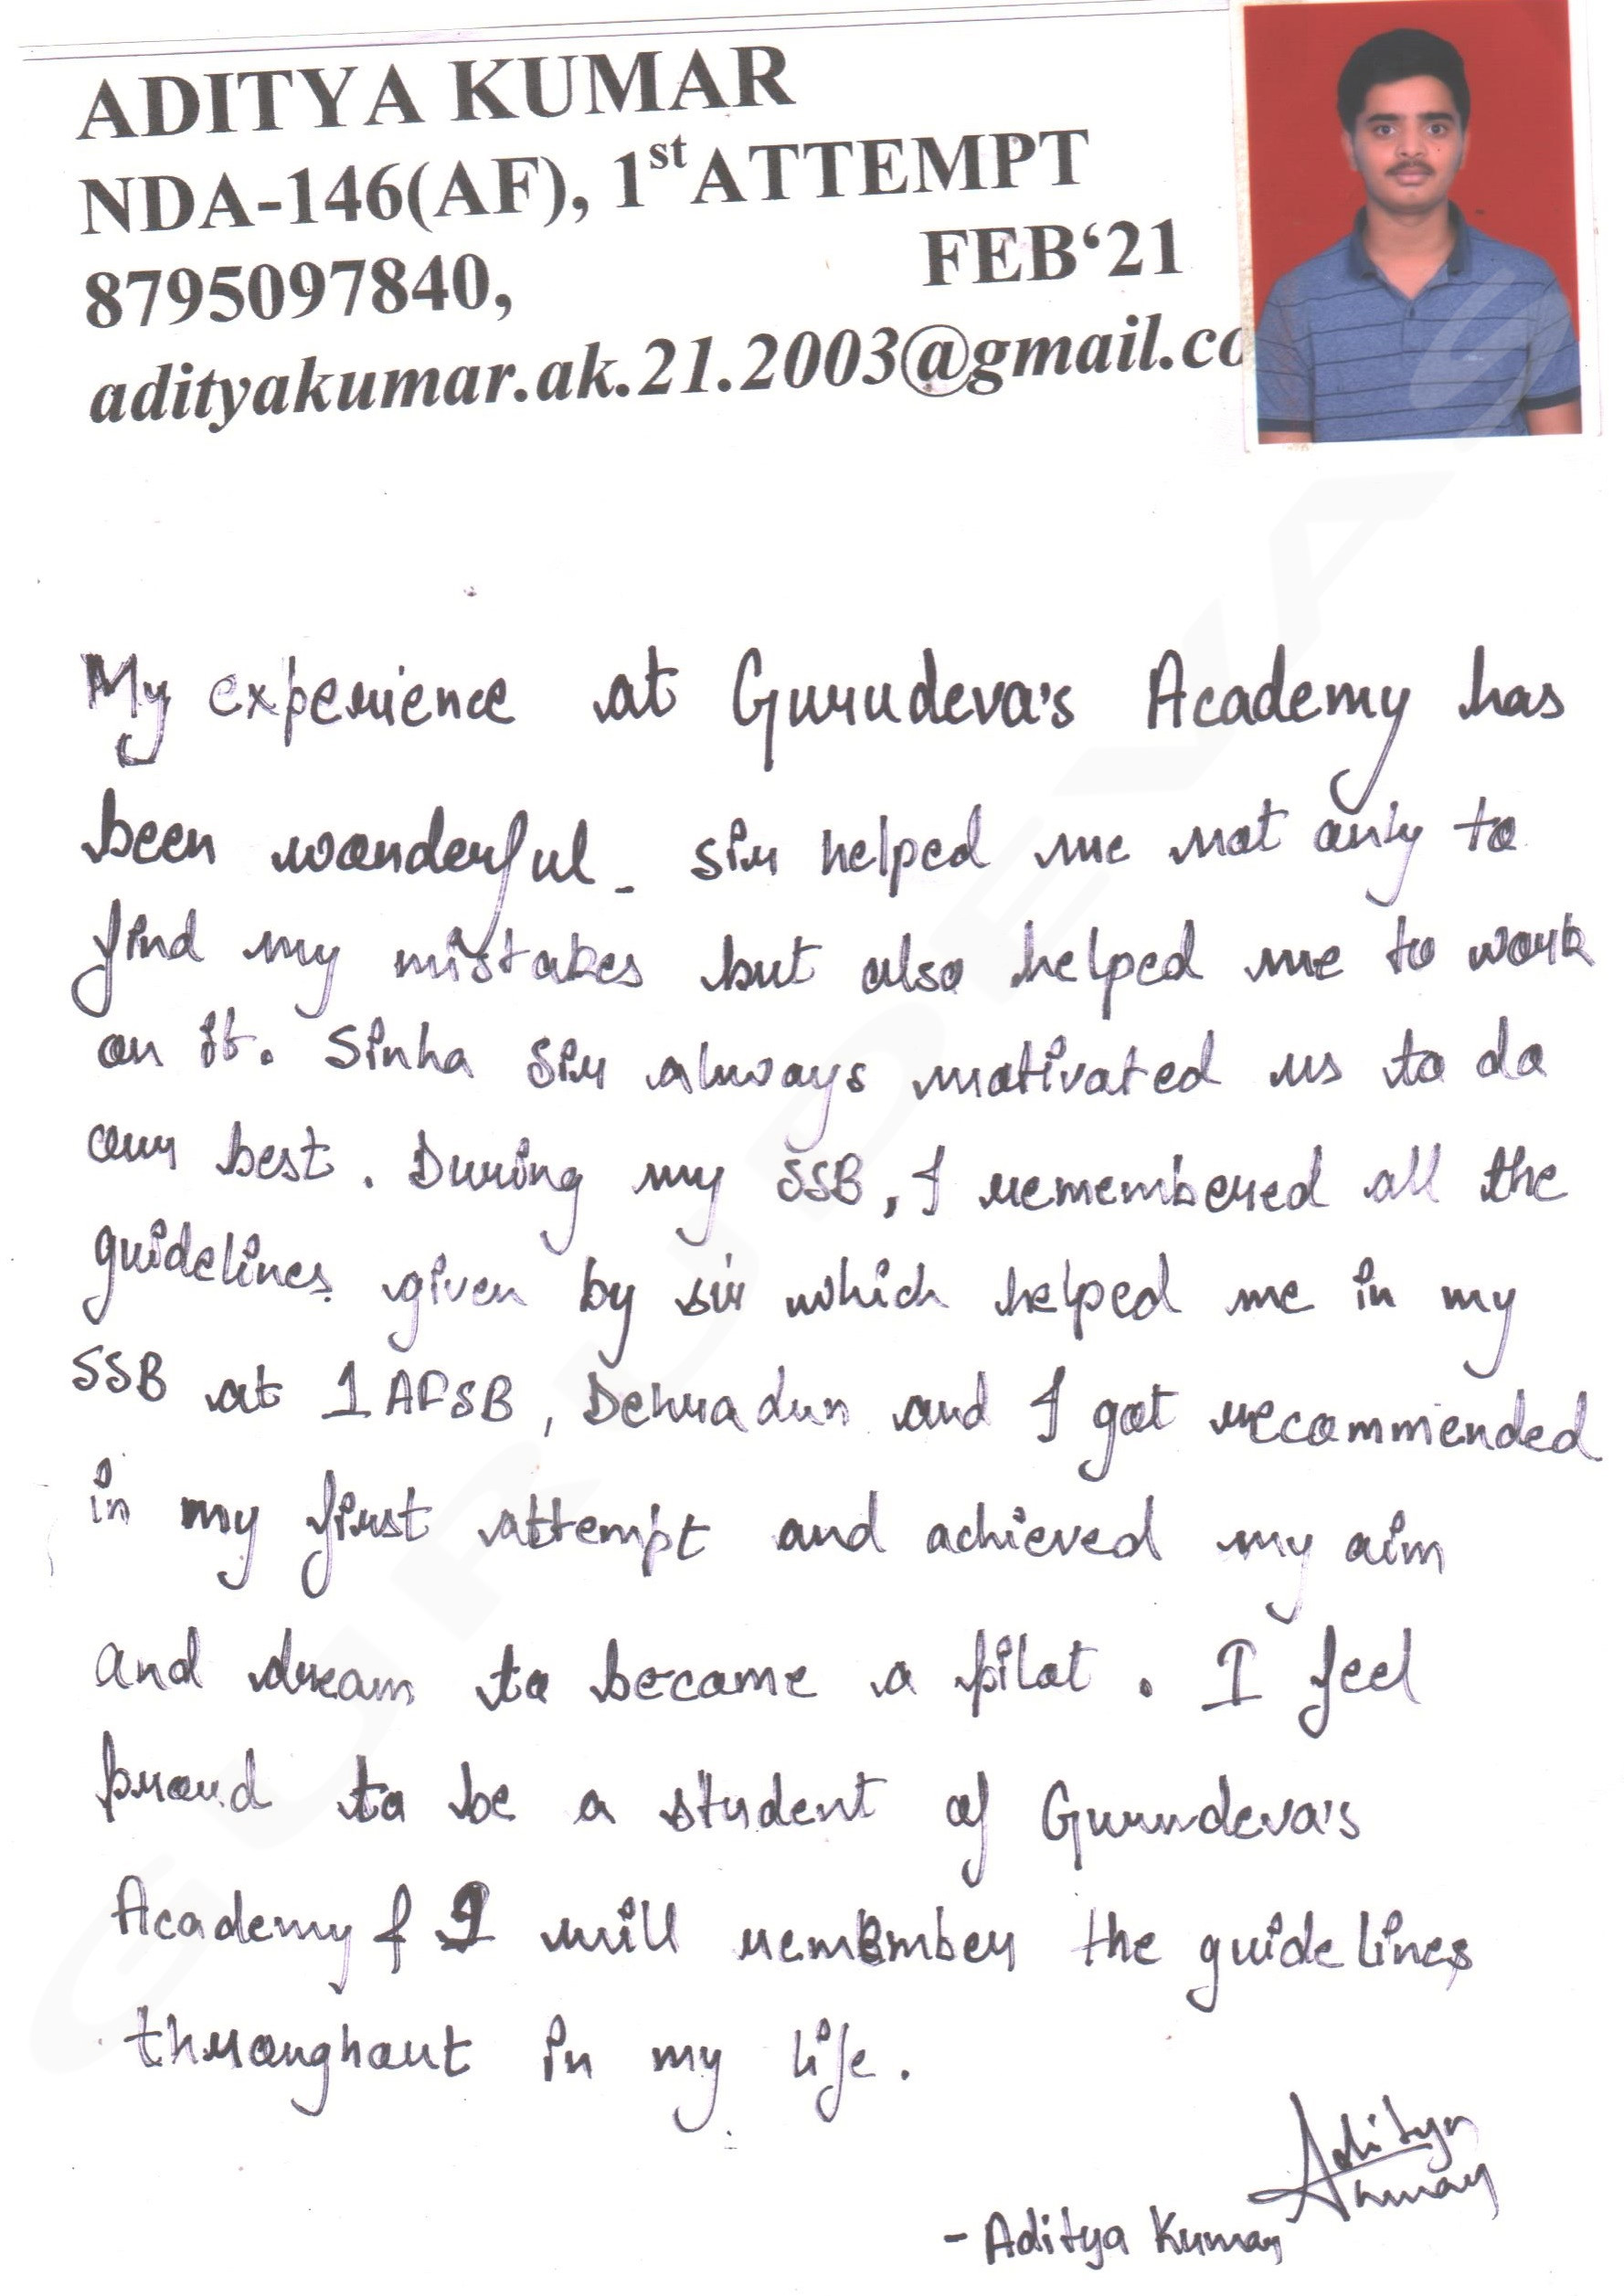 ADITYA KUMAR
NDA-146(AF), 1st ATTEMPT
FEB‘21
8795097840,
adityakumar.ak.21.2003@gmail.co
My experience at Gurudeva's Academy has
been wonderful. Sir helped me not only to
find my mistakes but also helped me to work
on it. Sinha Sir always motivated us to do
our best. During my SSB, I remembered all the
guidelines given by sir which helped me in my
SSB at 1 AFSB, Dehradun and I got recommended
in my first attempt and achieved my aim
and dream to become a pilot. I feel
proud to be a student of Gurudeva's
Academy & I will remember the guidelines
throughout in my life.
Aditya
Kumar
- Aditya Kumar
GURUDEVAS